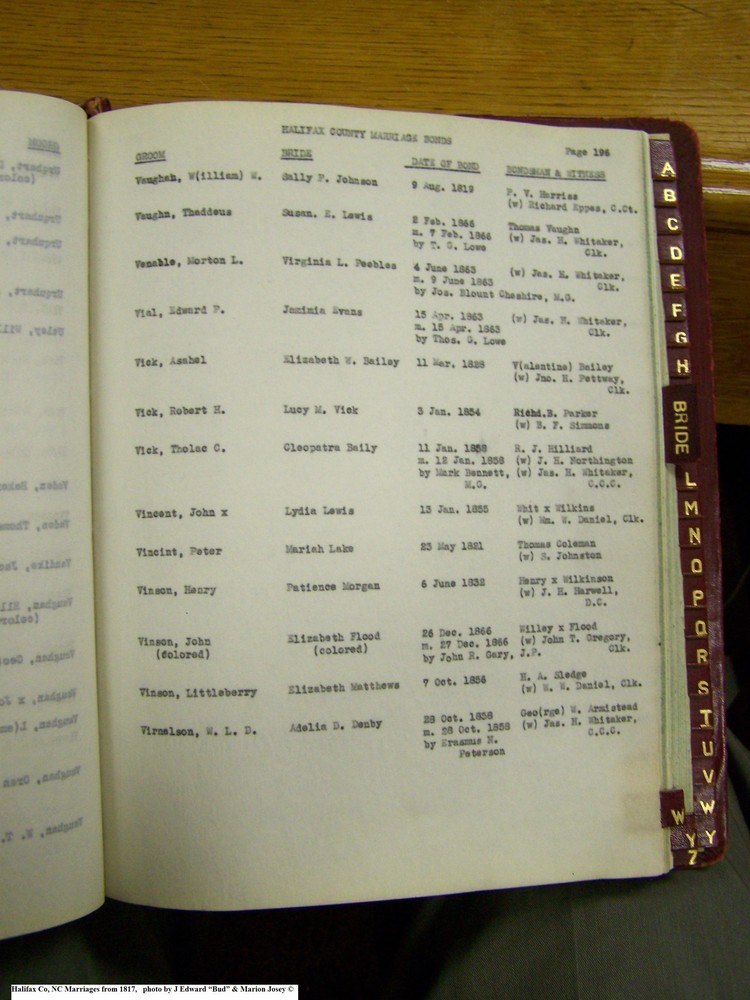 HALIFAX COUNTY MARRIAGE BONDS
Page 196
GROOM BRIDE DATE OF BOND BONDSMAN & WITNESS
Vaughan, W(illiam) W. Sally P. Johnson 9 Aug. 1819 P. V. Harriss
(w) Richard Eppes, C.Ct.
Vaughn, Thaddeus Susan. E. Lewis 2 Feb. 1866 Thomas Vaughn
m. 7 Feb. 1866 (w) Jas. H. Whitaker,
by T. G. Lowe Clk.
Venable, Morton L. Virginia L. Peebles 4 June 1863 (w) Jas. H. Whitaker,
m. 9 June 1863 Clk.
by Jos. Blount Cheshire, M.G.
Vial, Edward P. Jemimia Evans 15 Apr. 1863 (w) Jas. H. Whitaker,
m. 15 Apr. 1863 Clk.
by Thos. G. Lowe
Vick, Asahel Elizabeth W. Bailey 11 Mar. 1828 V(alentine) Bailey
(w) Jno. H. Pettway,
Clk.
Vick, Robert H. Lucy M. Vick 3 Jan. 1854 Richd.B. Parker
(w) B. F. Simmons
Vick, Tholac C. Cleopatra Baily 11 Jan. 1858 R. J. Hilliard
m. 12 Jan. 1858 (w) J. H. Northington
by Mark Bennett, (w) Jas. H. Whitaker,
M.G. C.C.C.
Vincent, John x Lydia Lewis 13 Jan. 1855 Whit x Wilkins
(w) Wm. W. Daniel, Clk.
Vincint, Peter Mariah Lake 23 May 1821 Thomas Coleman
(w) S. Johnston
Vinson, Henry Patience Morgan 6 June 1832 Henry x Wilkinson
(w) J. H. Harwell,
D.C.
Vinson, John Elizabeth Flood 26 Dec. 1866 Willey x Flood
(colored) (colored) m. 27 Dec. 1866 (w) John T. Gregory,
by John R. Gary, J.P. Clk.
Vinson, Littleberry Elizabeth Matthews 7 Oct. 1856 H. A. Sledge
(w) W. W. Daniel, Clk.
Virnelson, W. L. D. Adelia D. Denby 28 Oct. 1858 Geo(rge) W. Armistead
m. 28 Oct. 1858 (w) Jas. H. Whitaker,
by Erasmus N. C.C.C.
Peterson
A
B
C
D
E
F
G
H
BRIDE
L
M
N
O
P
Q
R
S
T
U
V
W
Y
W
Y
Z
Halifax Co, NC Marriages from 1817, photo by J Edward “Bud” & Marion Josey ©